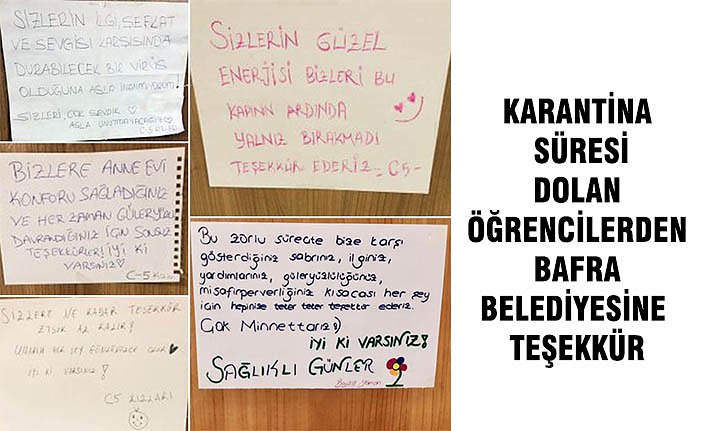 SİZLERİN İLGİ, SEFKAT
VE SEVGİSİ KARŞISINDA
DURABİLECEK BİR VİRÜS
OLDUĞUNA ASLA İNANMIYORUM!
SİZLERİ ÇOK SEVDİK
ASLA UNUTMAYACAĞIZ
C-5 KIZLARI
BİZLERE ANNE EVİ
KONFORU SAĞLADIĞINIZ
VE HER ZAMAN GÜLERYÜZLÜ
DAVRANDIĞINIZ İÇİN SONSUZ
TEŞEKKÜRLER! İYİ Kİ
VARSINIZ
C-5
SİZLERE NE KADAR TEŞEKKÜR
ETSEK AZ KALIR!
HER ŞEY
İYİ Kİ VARSINIZ!
C5 KIZLARI
SİZLERİN GÜZEL
ENERJİSİ BİZLERİ BU
KAPININ ARDINDA
YALNIZ BIRAKMADI
TEŞEKKÜR EDERİZ - C5 -
Bu zorlu süreçte bize karşı
gösterdiğiniz sabrınız, ilginiz,
yardımlarınız, güleryüzlülüğünüz,
misafirperverliğiniz kısacası her şey
için hepinize teker teker teşekkür ederiz.
Çok Minnettarız :)
İYİ Kİ VARSINIZ!
SAĞLIKLI GÜNLER
KARANTİNA
SÜRESİ
DOLAN
ÖĞRENCİLERDEN
BAFRA
BELEDİYESİNE
TEŞEKKÜR